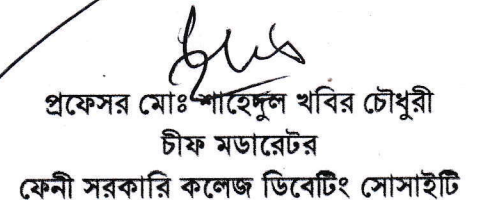 প্রফেসর মোঃ শাহেদুল খবির চৌধুরী
চীফ মডারেটর
ফেনী সরকারি কলেজ ডিবেটিং সোসাইটি